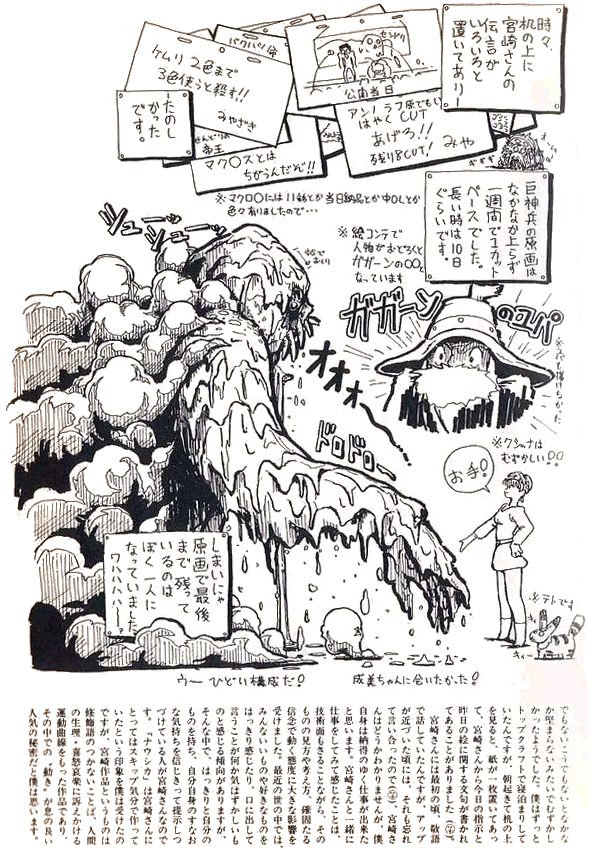 時々、
机の上に
宮崎さんの
伝言が
いろいろと
置いてあり―
パクパパ命
セントリ
公開当日
ケムリ 2色まで
3色使うと殺す!!
みやざき
アンノ ラフ原でもい
はやくCUT
あげろ!!
残り8CUT!
みや
―たのし
かった
です。
帝王
マク〇スとは
ちがうんだぞ!!
※マクロ〇には
当日納品とか
色々有りましたので…
巨神兵の原画は
なかなか上らず
一週間で1カット
ペースでした。
長い時は10日
ぐらいです。
※絵コンテで
人物がおどろくと
ガガーンの〇〇と
なっています
シュー
シュー
ガガーン
のユパ
オオオ
ドロドロー
※クシャナは
むずかしい!!
お手!
※テトです
しまいにゃ
原画で最後
まで残って
いるのは
ぼく一人に
なっていました
ワハハハハー!?
うー ひどい構成だ!
成美ちゃんに会いたかった!
でもないこうでもないとなかな
か堅まらないみたいでむずかし
かったようでした。僕はずっと
トップクラフトで寝泊まりして
いたんですが、朝起きて机の上
を見ると、紙が一枚置いてあっ
て、宮崎さんから今日の指示と
昨日の絵に関する文句が書かれ
てあることがありました(笑)。
宮崎さんには最初の頃、敬語
で話してたんですが、アップ
が近づいた頃には、それも忘れ
て言い合ったので(笑)、宮崎さ
んはどうかわかりませんが、僕
自身は納得のゆく仕事が出来た
と思います。宮崎さんと一緒に
仕事をしてみて感じたことは、
技術面もさることながら、その
ものの見方や考え方、確固たる
信念で動く態度に大きな影響を
受けました。最近の世の中では、
みんないいものや好きなものを
はっきり感じたり、口に出して
言うことが何か気はずかしいも
のと感じる傾向がありますが、
そんな中で、はっきりと自分の
ものを持ち、自分自身のすなお
な気持ちを信じきって提示しつ
づけている人が宮崎さんなので
す。『ナウシカ』は宮崎さんに
とってはスキップ気分で作って
いたという印象を僕は受けたの
ですが、宮崎作品というものは
修飾語のつかないことば、人間
の生理・喜怒哀楽に訴えかける
運動曲線をもった作品であり、
その中での〝動き〟が息の長い
人気の秘密だと僕は思います。